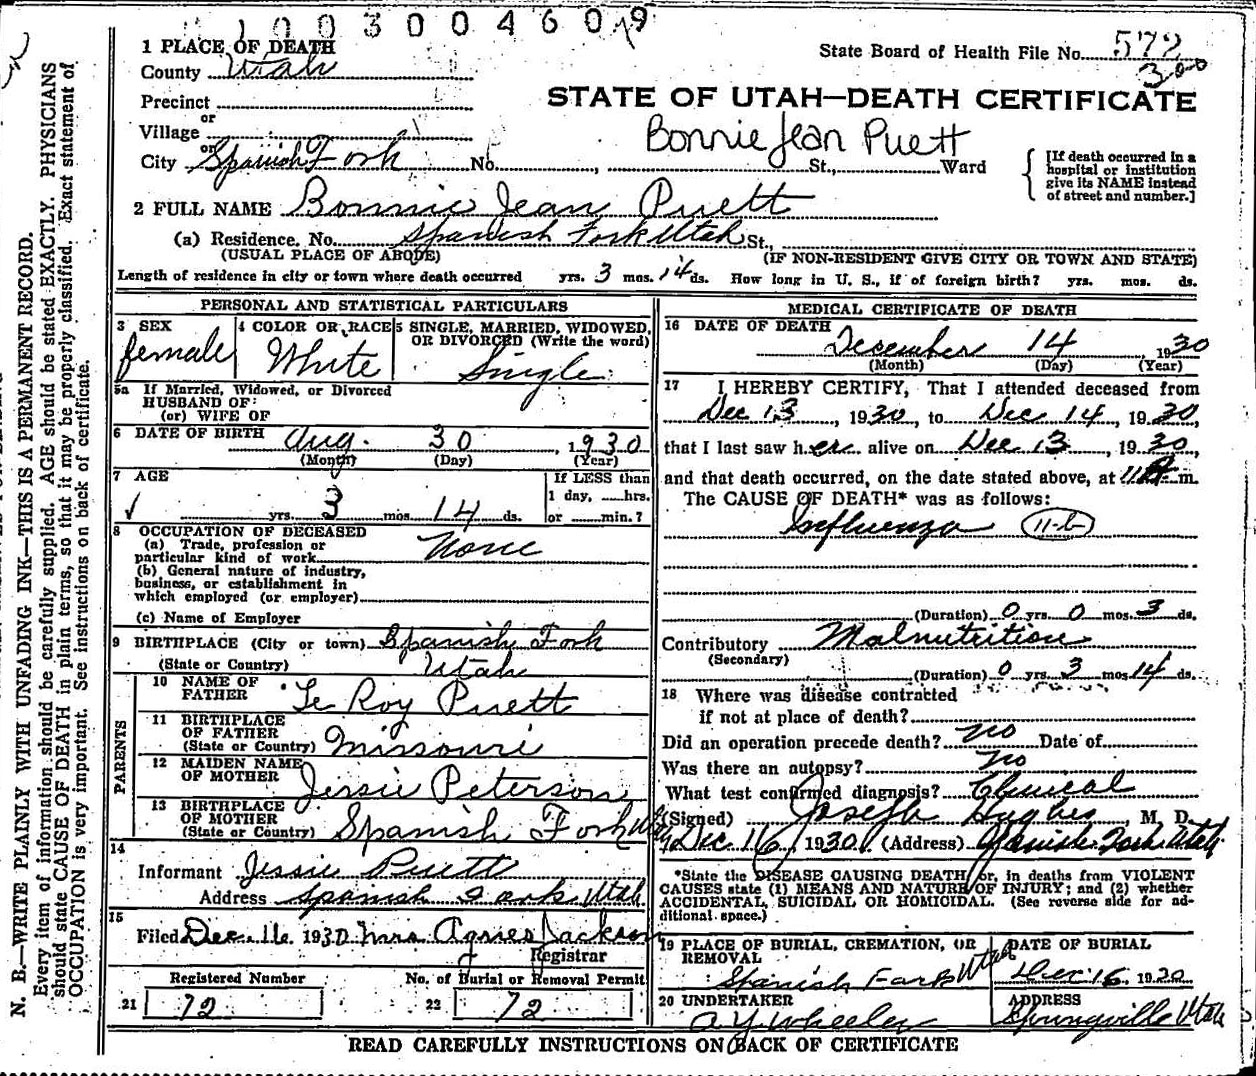 1003004609
1 PLACE OF DEATH
State Board of Health File No. 572
300
County Utah
STATE OF UTAH—DEATH CERTIFICATE
Precinct
or
Village
or
Bonnie Jean Puett
City Spanish Fork No. St., Ward
[If death occurred in a hospital or institution give its NAME instead of street and number.]
2 FULL NAME Bonnie Jean Puett
(a) Residence. No. Spanish Fork Utah St.,
(USUAL PLACE OF ABODE) (IF NON-RESIDENT GIVE CITY OR TOWN AND STATE)
Length of residence in city or town where death occurred yrs. 3 mos. 14 ds. How long in U. S., if of foreign birth? yrs. mos. ds.
PERSONAL AND STATISTICAL PARTICULARS
3 SEX
female
4 COLOR OR RACE
White
5 SINGLE, MARRIED, WIDOWED, OR DIVORCED (Write the word)
Single
5a If Married, Widowed, or Divorced
HUSBAND OF
(or) WIFE OF
6 DATE OF BIRTH Aug. 30, 1930
(Month) (Day) (Year)
7 AGE
yrs. 3 mos. 14 ds.
If LESS than
1 day, hrs.
or min.?
8 OCCUPATION OF DECEASED
(a) Trade, profession or
particular kind of work None
(b) General nature of industry,
business, or establishment in
which employed (or employer)
(c) Name of Employer
9 BIRTHPLACE (City or town) Spanish Fork
(State or Country) Utah
PARENTS
10 NAME OF
FATHER Le Roy Puett
11 BIRTHPLACE
OF FATHER
(State or Country) Missouri
12 MAIDEN NAME
OF MOTHER Jessie Peterson
13 BIRTHPLACE
OF MOTHER
(State or Country) Spanish Fork Utah
14
Informant Jessie Puett
Address Spanish Fork, Utah
15
Filed Dec. 16. 1930 Mrs Agnes Jackson
Registrar
Registered Number No. of Burial or Removal Permit
21 72 22 72
MEDICAL CERTIFICATE OF DEATH
16 DATE OF DEATH
December 14, 1930
(Month) (Day) (Year)
17 I HEREBY CERTIFY, That I attended deceased from
Dec 13, 1930, to Dec 14, 1930,
that I last saw her alive on Dec 13, 1930,
and that death occurred, on the date stated above, at m.
The CAUSE OF DEATH* was as follows:
Influenza 11-b
(Duration) 0 yrs. 0 mos. 3 ds.
Contributory Malnutrition
(Secondary)
(Duration) 0 yrs. 3 mos 14 ds.
18 Where was disease contracted
if not at place of death?
Did an operation precede death? No Date of
Was there an autopsy? No
What test confirmed diagnosis? Clinical
(Signed) Joseph Hughes, M. D.
Dec. 16, 1930 (Address) Spanish Fork, Utah
*State the DISEASE CAUSING DEATH or, in deaths from VIOLENT
CAUSES state (1) MEANS AND NATURE OF INJURY; and (2) whether
ACCIDENTAL, SUICIDAL OR HOMICIDAL. (See reverse side for ad-
ditional space.)
19 PLACE OF BURIAL, CREMATION, OR
REMOVAL
Spanish Fork Utah
DATE OF BURIAL
Dec 16, 1930
20 UNDERTAKER
A Y Wheeler
ADDRESS
Springville Utah
READ CAREFULLY INSTRUCTIONS ON BACK OF CERTIFICATE
N. B.—WRITE PLAINLY WITH UNFADING INK—THIS IS A PERMANENT RECORD.
Every item of information should be carefully supplied. AGE should be stated EXACTLY. PHYSICIANS
should state CAUSE OF DEATH in plain terms, so that it may be properly classified. Exact statement of
OCCUPATION is very important. See instructions on back of certificate.